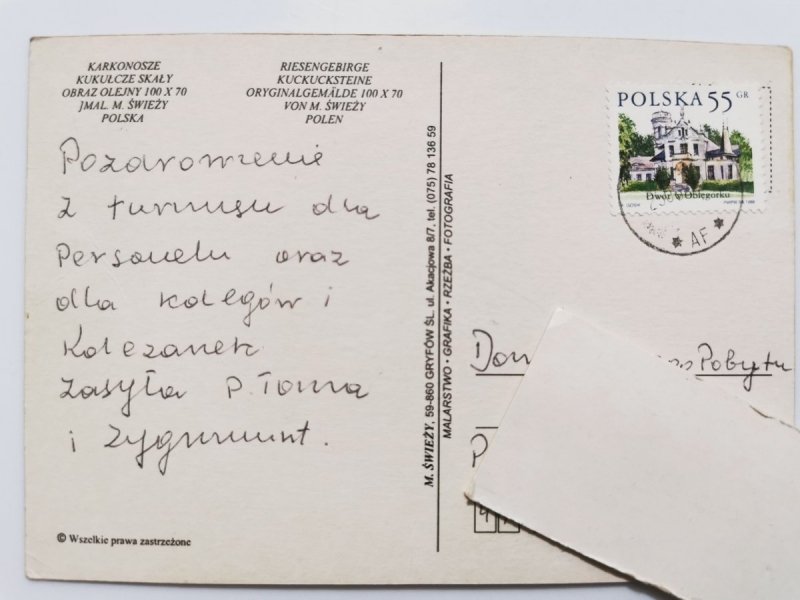 KARKONOSZE
KUKUŁCZE SKAŁY
OBRAZ OLEJNY 100 X 70
JMAL. M. ŚWIEŻY
POLSKA
RIESENGEBIRGE
KUCKUCKSTEINE
ORYGINALGEMÄLDE 100 X 70
VON M. ŚWIEŻY
POLEN
POLSKA 55 GR
Dwór w Oblęgorku
AF
Pozdrowienie
z turnusu dla
Personelu oraz
dla kolegów i
Koleżanek
zasyła P. Iwona
i Zygmunt.
M. ŚWIEŻY, 59-860 GRYFÓW ŚL. ul. Akacjowa 8/7, tel. (075) 78 136 59
MALARSTWO • GRAFIKA • RZEŹBA • FOTOGRAFIA
Dom Pobytu
P
4
© Wszelkie prawa zastrzeżone